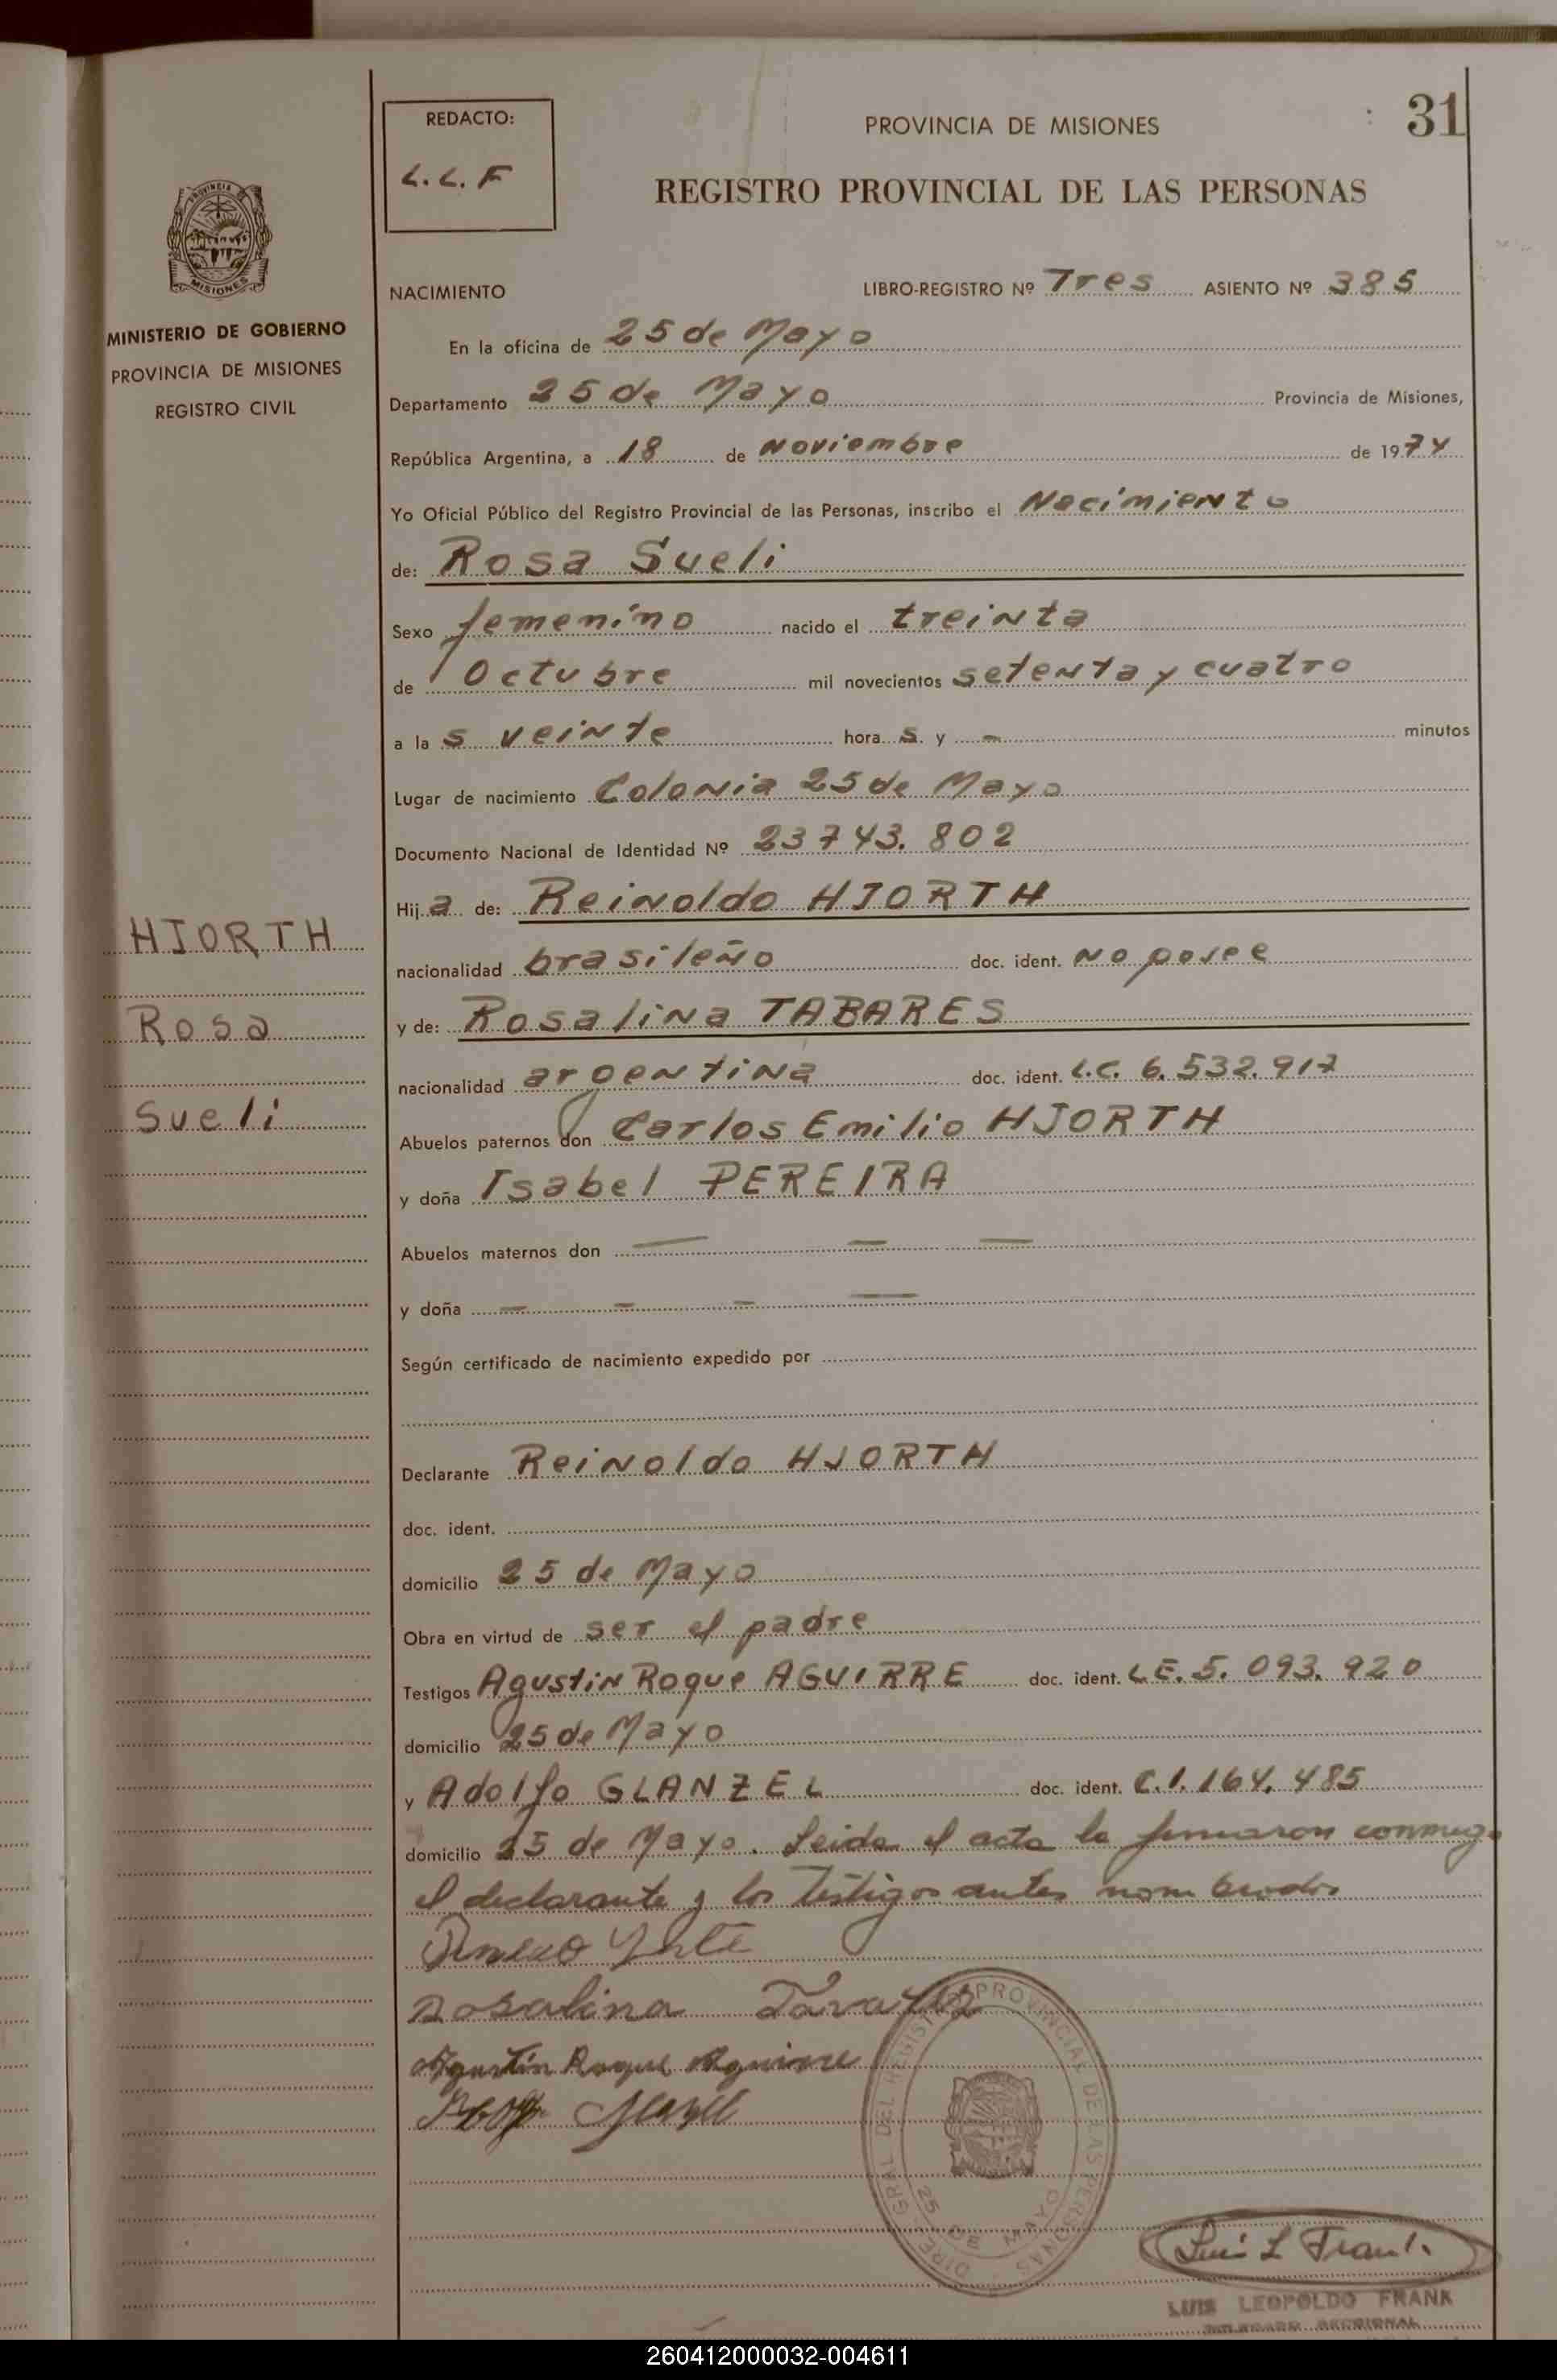 31
REDACTO:
L.L.F
PROVINCIA DE MISIONES
REGISTRO PROVINCIAL DE LAS PERSONAS
PROVINCIA DE
MISIONES
MINISTERIO DE GOBIERNO
PROVINCIA DE MISIONES
REGISTRO CIVIL
HJORTH
Rosa
Sueli
NACIMIENTO LIBRO-REGISTRO Nº Tres ASIENTO Nº 385
En la oficina de 25 de Mayo
Departamento 25 de Mayo Provincia de Misiones,
República Argentina, a 18 de Noviembre de 1974
Yo Oficial Público del Registro Provincial de las Personas, inscribo el Nacimiento
de: Rosa Sueli
Sexo femenino nacido el treinta
de Octubre mil novecientos setenta y cuatro
a la s veinte hora s. y - minutos
Lugar de nacimiento Colonia 25 de Mayo
Documento Nacional de Identidad Nº 23743.802
Hij a de: Reinoldo HJORTH
nacionalidad brasileño doc. ident. No posee
y de: Rosalina TABARES
nacionalidad argentina doc. ident. L.C. 6.532.917
Abuelos paternos don Carlos Emilio HJORTH
y doña Isabel PEREIRA
Abuelos maternos don — — —
y doña - - - —
Según certificado de nacimiento expedido por
Declarante Reinoldo HJORTH
doc. ident.
domicilio 25 de Mayo
Obra en virtud de ser el padre
Testigos Agustin Roque AGUIRRE doc. ident. L.E. 5.093.920
domicilio 25 de Mayo
y Adolfo GLANZEL doc. ident. C.I. 164.485
domicilio 25 de Mayo. Leida el acta la firmaron conmigo
el declarante y los testigos antes nombrados
Rosalina Tavares
Agustín Roque Aguirre
DIREC. GRAL. DEL REGISTRO PROVINCIAL DE LAS PERSONAS
25 DE MAYO
Luis L Frank
LUIS LEOPOLDO FRANK
DELEGADO SECCIONAL
260412000032-004611